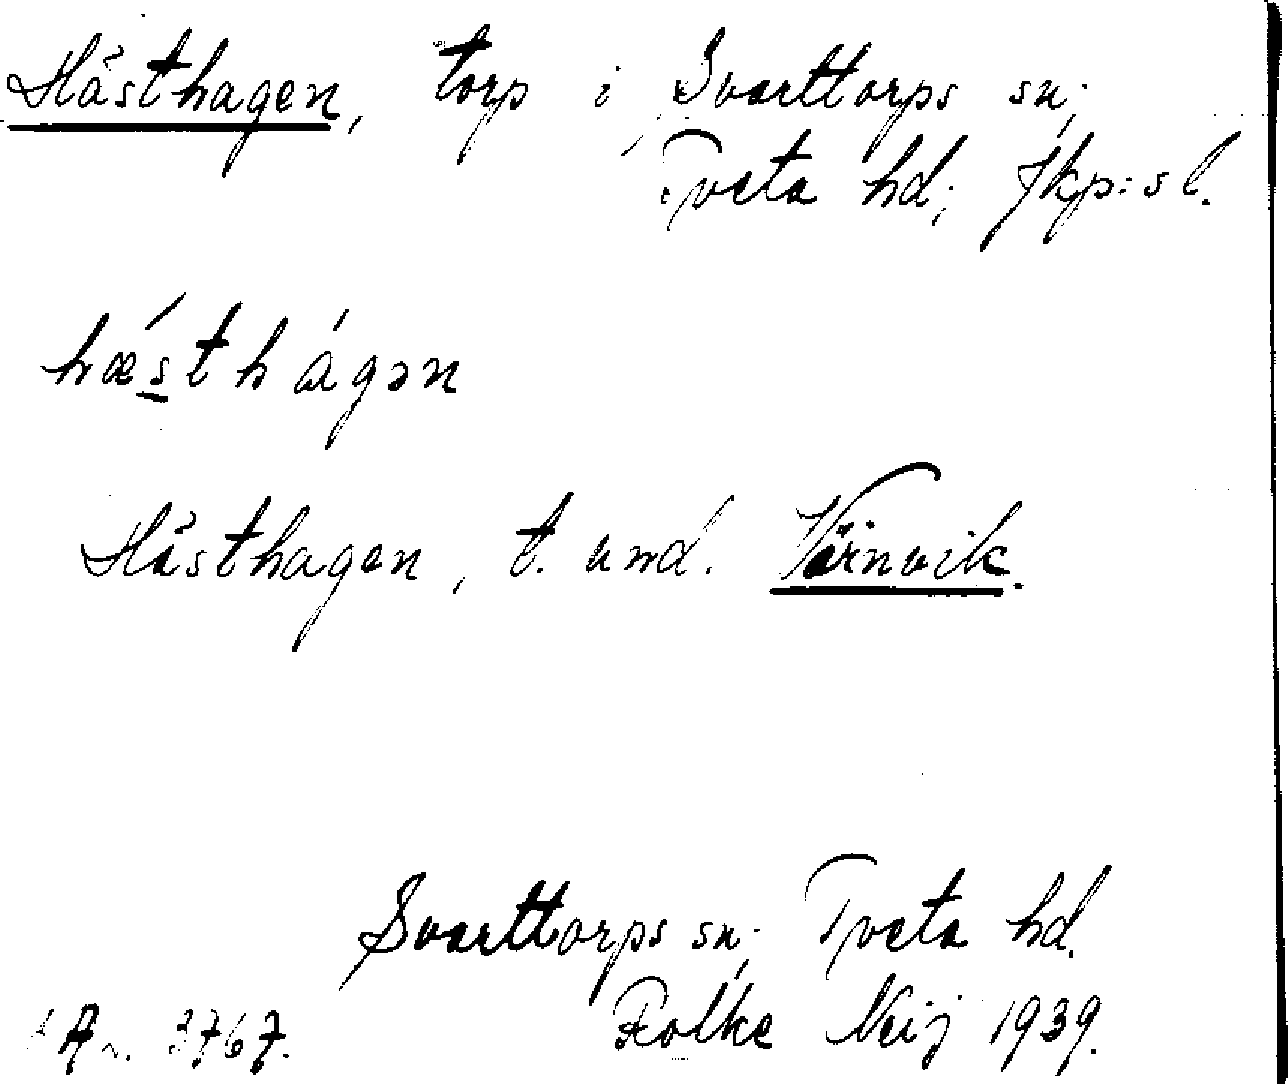 Hästhagen, torp i Svarttorps sn;
Tveta hd; Jkp:s l.
hǽsthágən
Hästhagen, t. und. Värnvik.
Svarttorps sn; Tveta hd.
Folke Neij 1939.
3767.